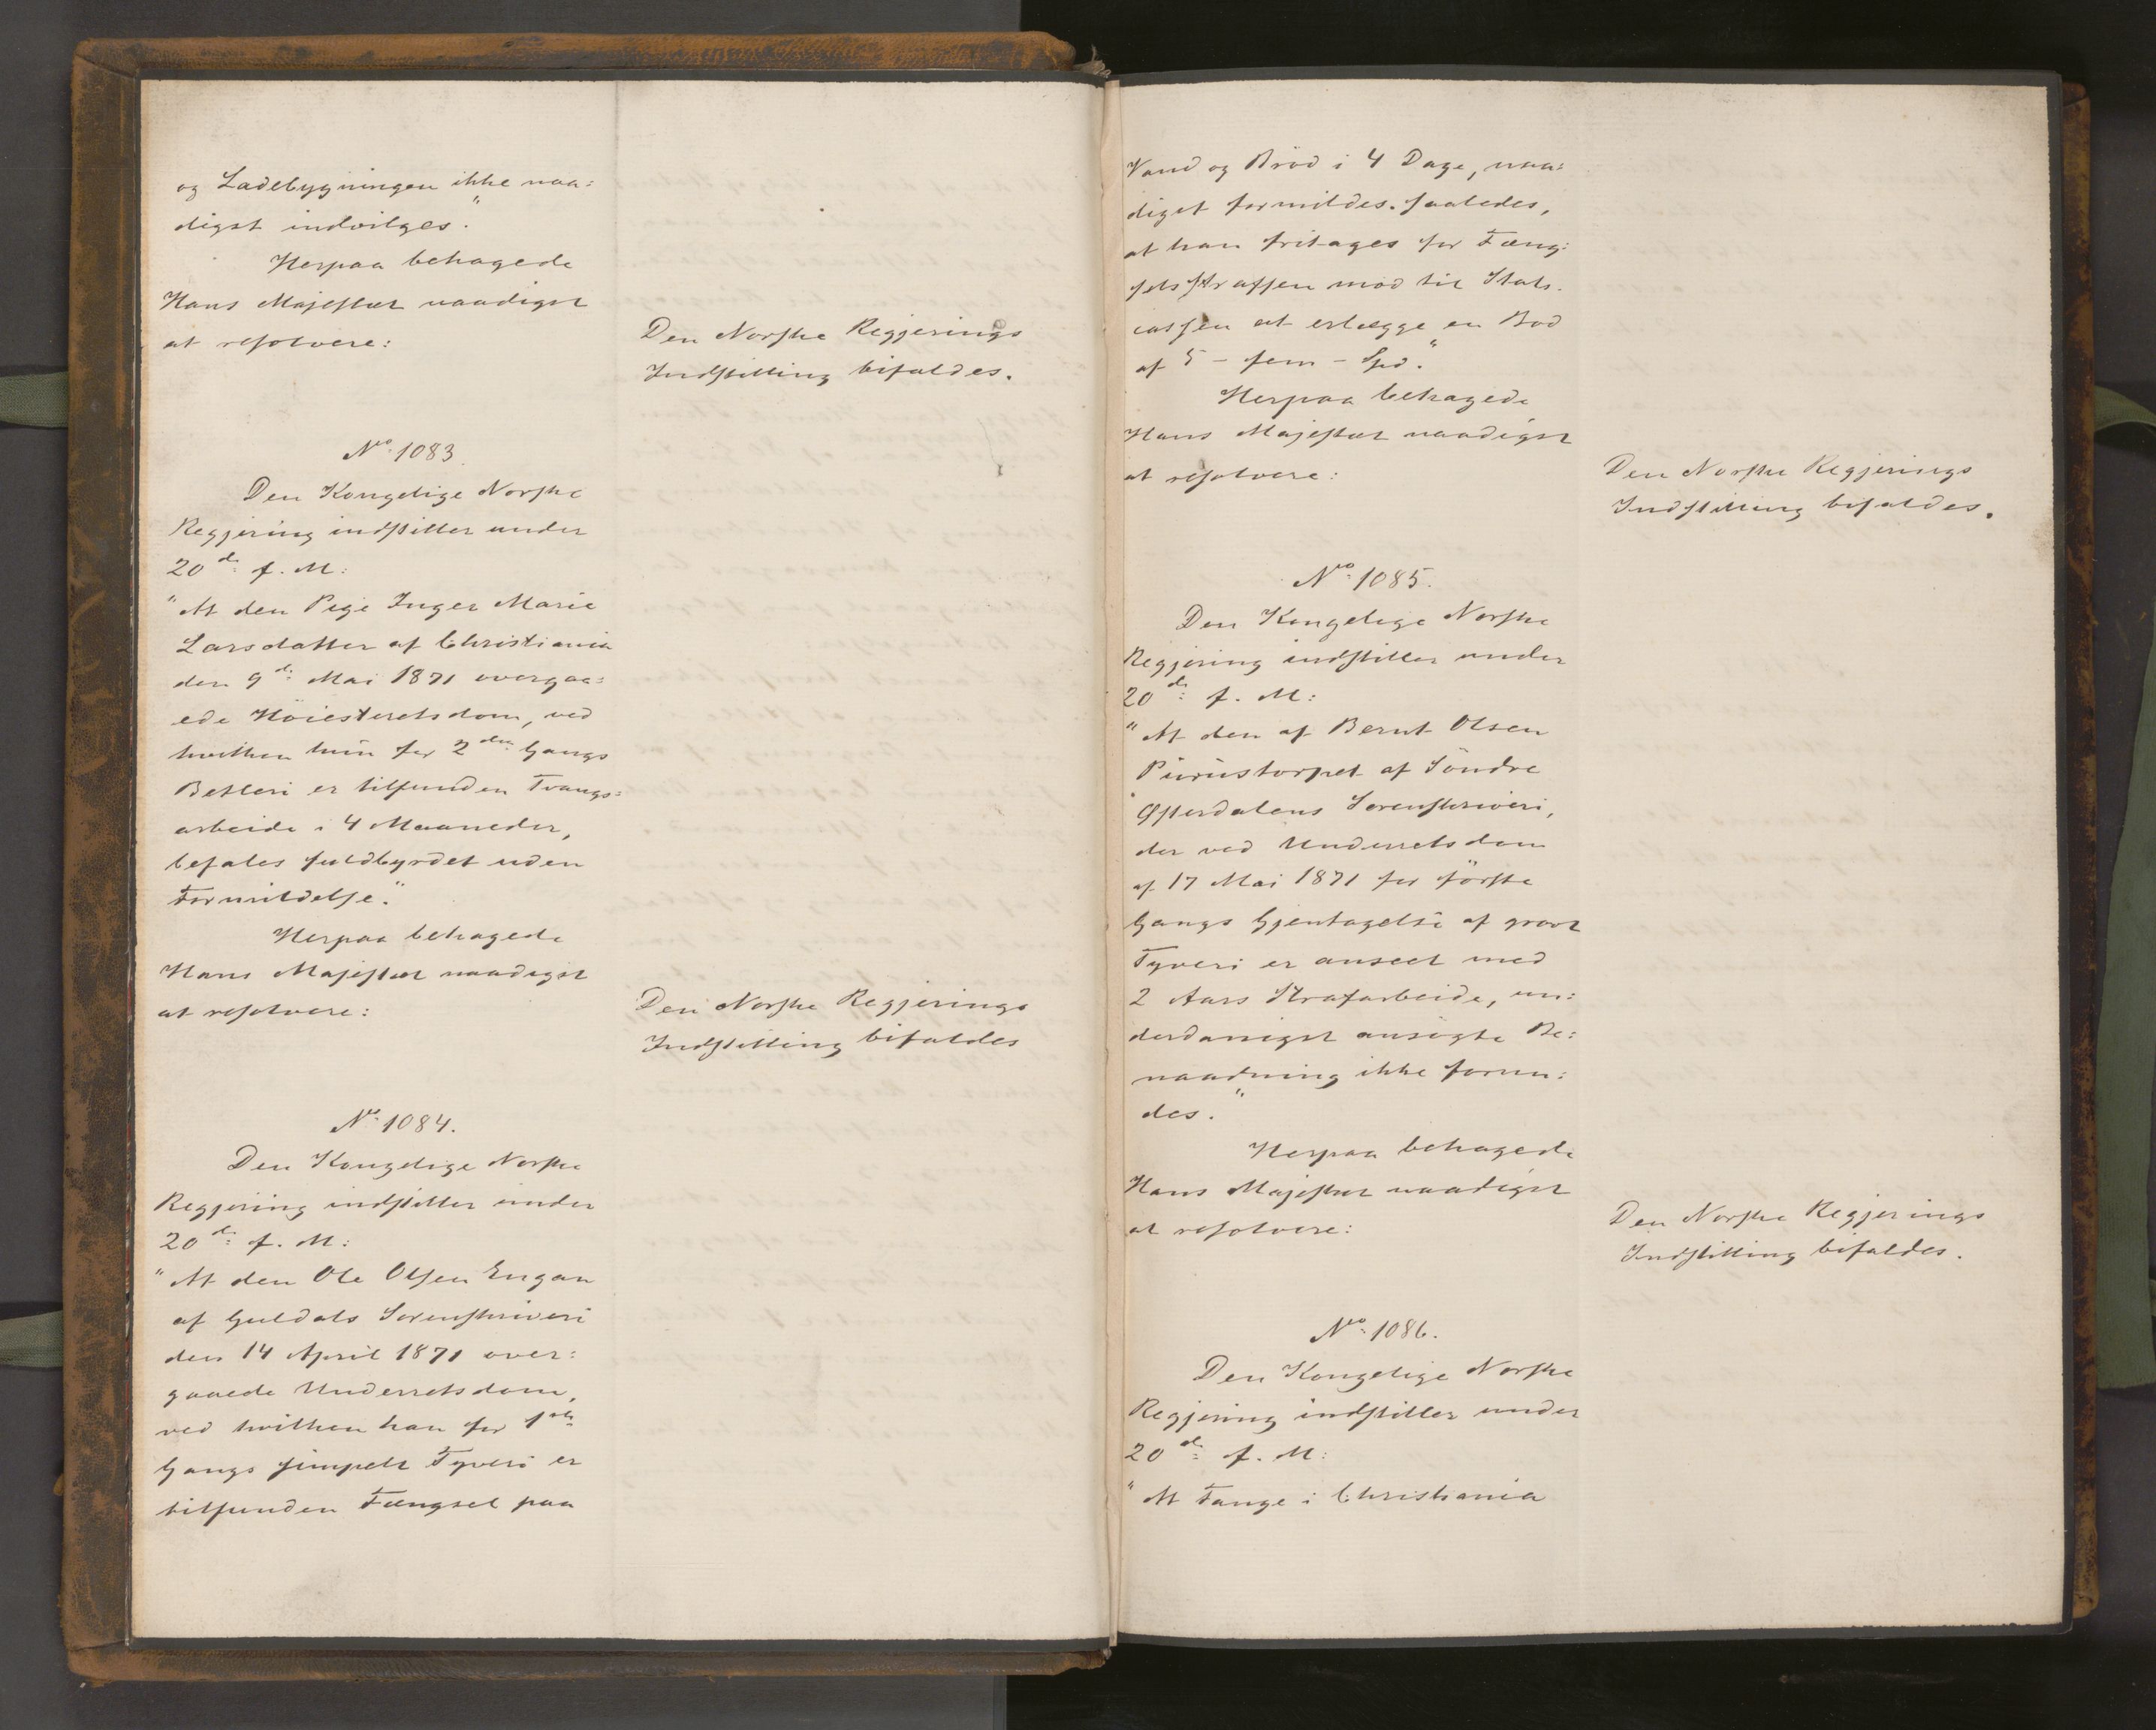 og Ladebygningen ikke naa:
digst indvilges."
Herpaa behagede
Hans Majestæt naadigst
at resolvere:
Den Norske Regjerings
Indstilling bifaldes.
No. 1083.
Den Kongelige Norske
Regjering indstiller under
20de f. M:
"At den Pige Inger Marie
Larsdatter af Christiania
den 9de Mai 1871 overgaa:
ede Höiesteretsdom, ved
hvilken hun for 2den Gangs
Betleri er tilfunden Tvangs:
arbeide i 4 Maaneder,
befales fuldbyrdet uden
Formildelse."
Herpaa behagede
Hans Majestæt naadigst
at resolvere:
Den Norske Regjerings
Indstilling bifaldes
No. 1084.
Den Kongelige Norske
Regjering indstiller under
20de f. M:
"At den Ole Olsen Engan
af Guldals Sorenskriveri
den 14 April 1871 over:
gaaede Underretsdom,
ved hvilken han for 1ste
Gangs simpelt Tyveri er
tilfunden Fængsel paa
Vand og Bröd i 4 Dage, naa:
digst formildes saaledes,
at han fritages for Fæng:
selsstraffen mod til Stats-
cassen at erlægge en Bod
af 5 - fem - Spd."
Herpaa behagede
Hans Majestæt naadigst
at resolvere:
Den Norske Regjerings
Indstilling bifaldes.
No. 1085.
Den Kongelige Norske
Regjering indstiller under
20de f. M:
"At den af Bernt Olsen
Purustorpet af Söndre
Østerdalens Sorenskriveri,
der ved Underretsdom
af 17 Mai 1871 for förste
Gangs Gjentagelse af grovt
Tyveri er anseet med
2 Aars Strafarbeide, un:
derdanigst ansögte Be:
naadning ikke forun:
des."
Herpaa behagede
Hans Majestæt naadigst
at resolvere:
Den Norske Regjerings
Indstilling bifaldes.
No. 1086.
Den Kongelige Norske
Regjering indstiller under
20de f. M:
"At Fange i Christiania